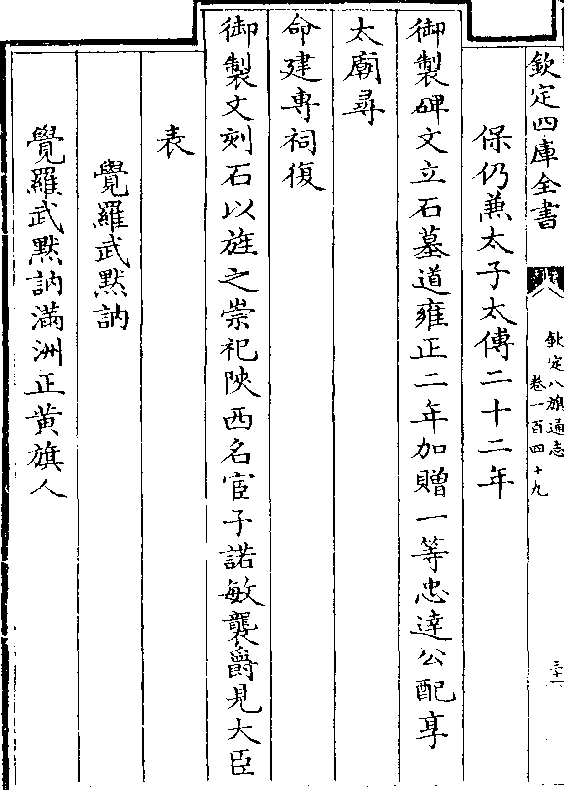 欽定四庫全書
欽定八旗通志
卷一百四十九
三十一
保仍兼太子太傅二十二年
御製碑文立石墓道雍正二年加贈一等忠達公配享
太廟尋
命建専祠復
御製文刻石以旌之崇祀陝西名宦子諾敏襲爵見大臣
表
覺羅武黙訥
覺羅武黙訥滿洲正黄旗人